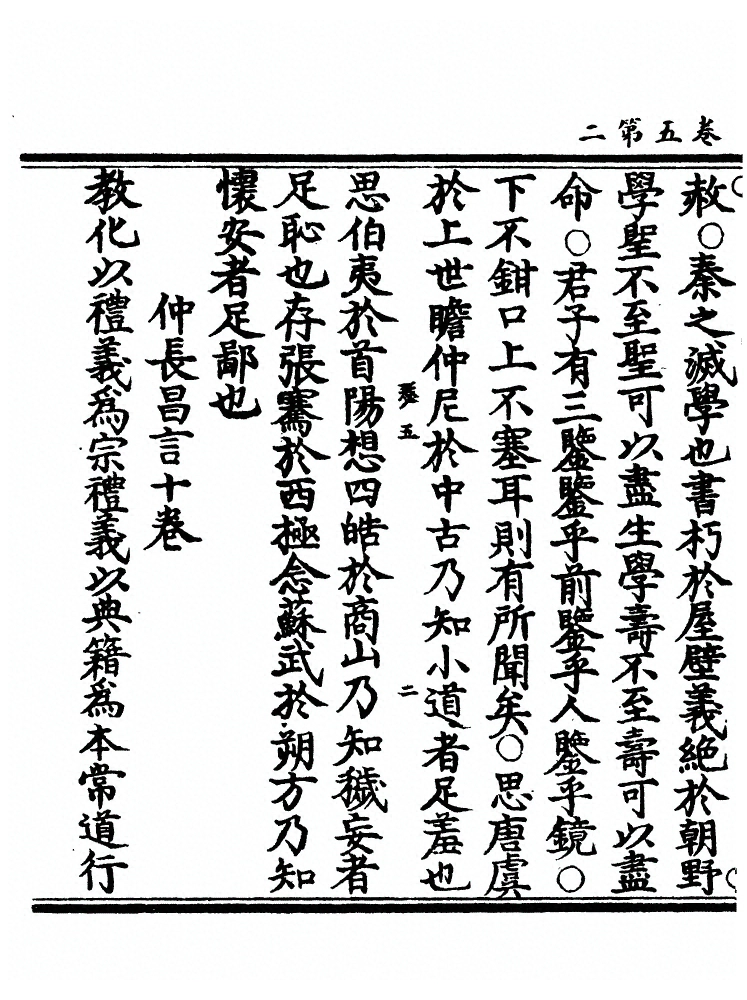 二第五卷
赦○秦之滅學也書朽於屋壁義絕於朝野
學聖不至聖可以盡生學壽不至壽可以盡
命○君子有三鑒鑒乎前鑒乎人鑒乎鏡○
下不鉗口上不塞耳則有所聞矣○思唐虞
於上世瞻仲尼於中古乃知小道者足羞也
五
二
思伯夷於首陽想四皓於商山乃知穢妄者
足恥也存張騫於西極念蘇武於朔方乃知
懷安者足鄙也
仲長昌言十卷
教化以禮義為宗禮義以典籍為本常道行